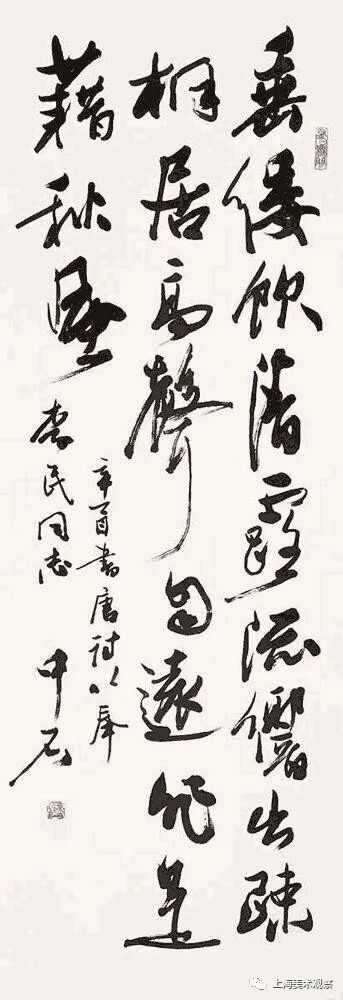 垂緌飲清露流響出疎
桐居高聲自遠非是
藉秋風
辛酉書唐詩以奉
民同志 中石
上海美术观察